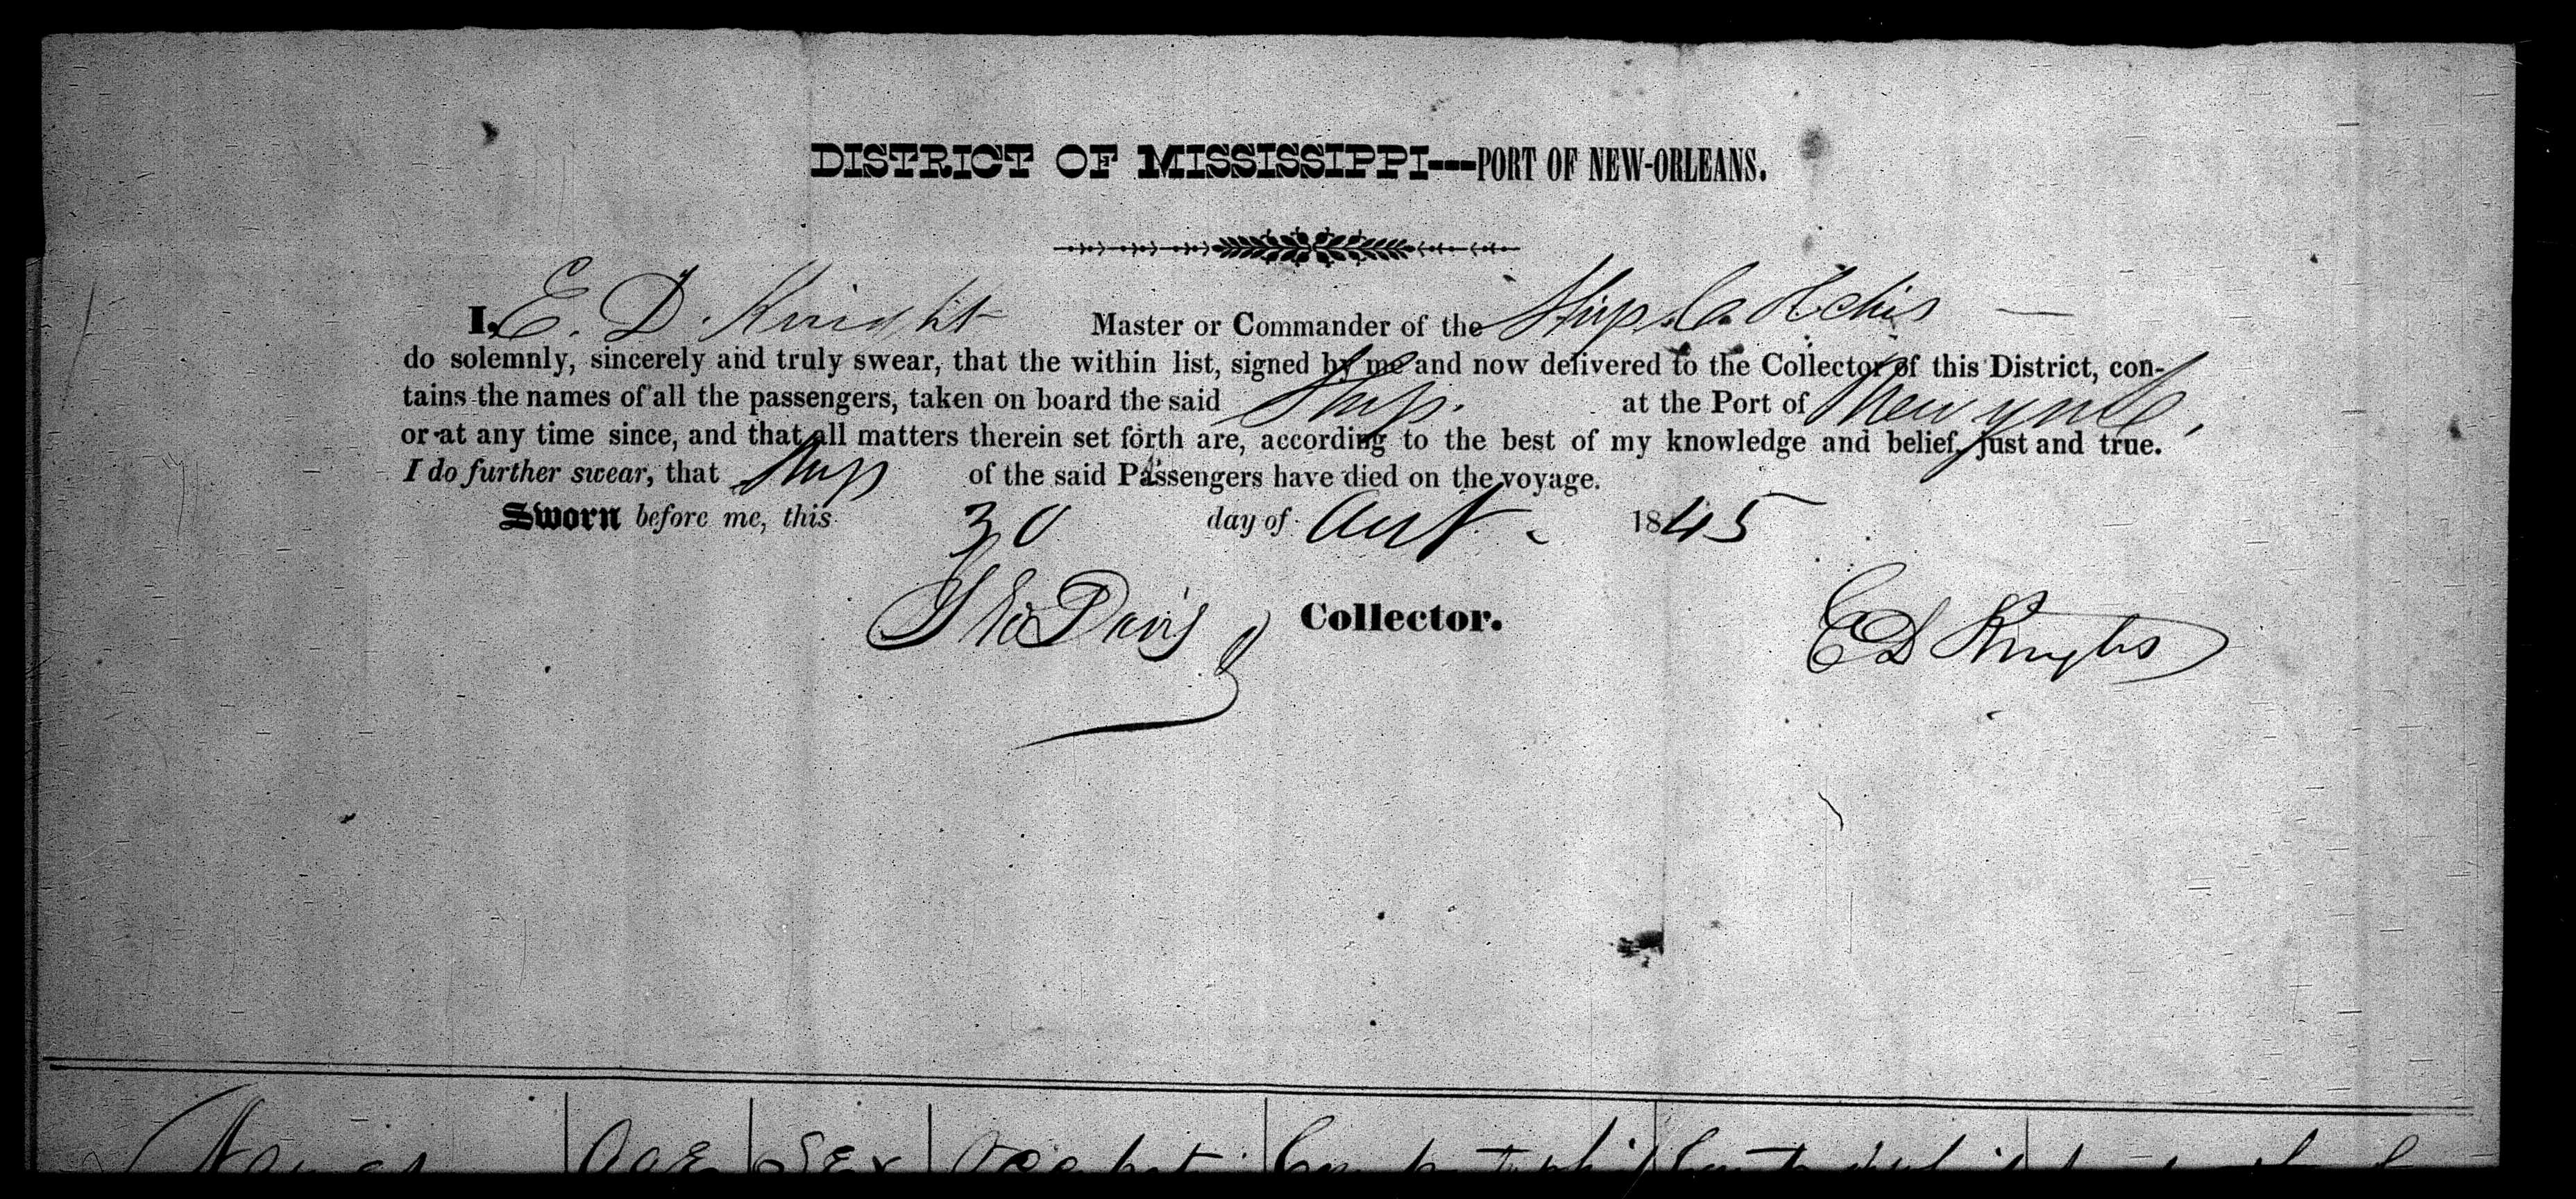 DISTRICT OF MISSISSIPPI---PORT OF NEW-ORLEANS.
I, E. D. Knight Master or Commander of the Ship
do solemnly, sincerely and truly swear, that the within list, signed by me and now delivered to the Collector of this District, con-
tains the names of all the passengers, taken on board the said Ship. at the Port of New York,
or at any time since, and that all matters therein set forth are, according to the best of my knowledge and belief, just and true.
I do further swear, that of the said Passengers have died on the voyage.
Sworn before me, this 30 day of 1845
Davis Collector. E D Knight
Names AGE SEX